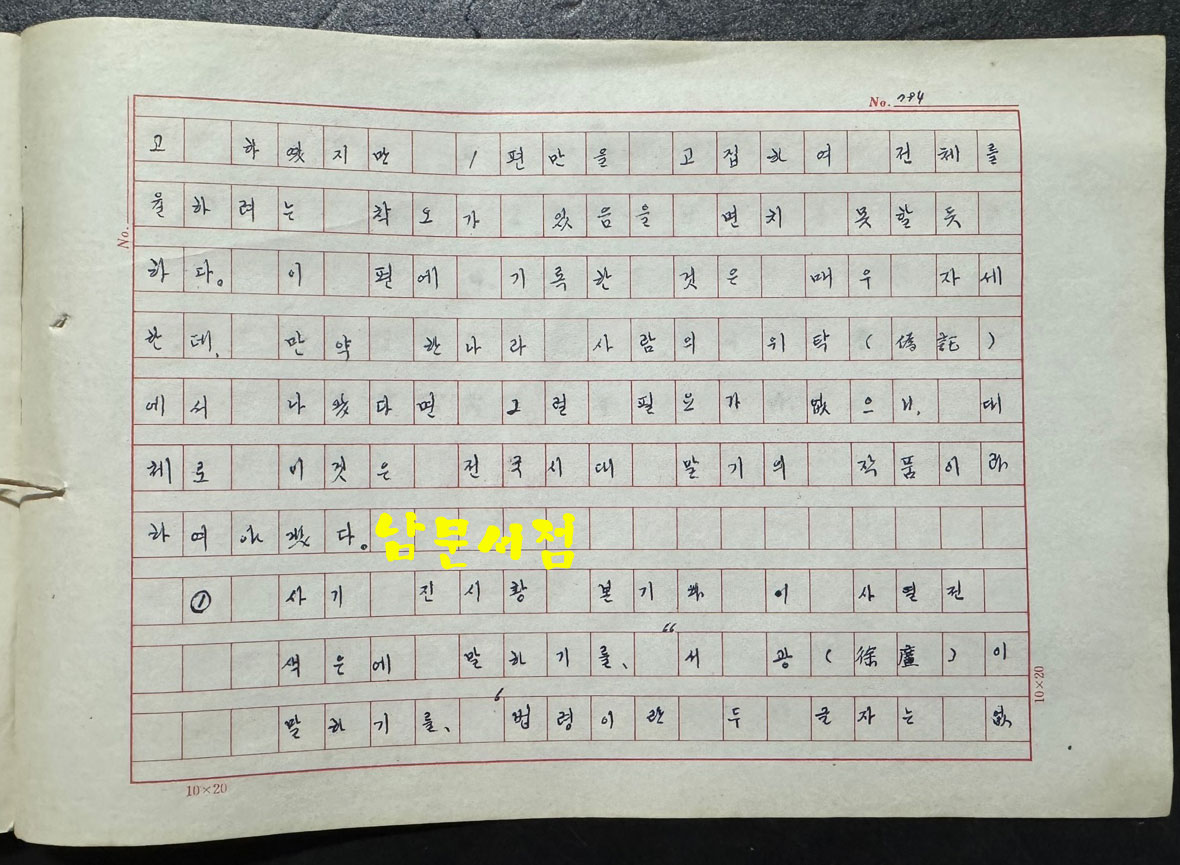 No. 784
고 하였지만 1편만을 고집하여 전체를
율하려는 착오가 있음을 면치 못할듯
하다. 이 편에 기록한 것은 매우 자세
한데, 만약 한나라 사람의 위탁(僞託)
에서 나왔다면 그럴 필요가 없으니, 대
체로 이것은 전국시대 말기의 작품이라
하여야겠다.
남문서점
① 사기 진시황 본기와 이사열전
색은에 말하기를, “서광(徐廣)이
말하기를, ‘법령이란 두 글자는 없
No.
10×20
10×20